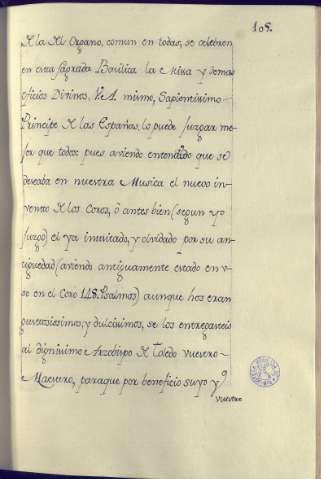 108.
de la del Organo, comun en todas, se celebren
en esta sagrada Basilica la Misa y demas
oficios Divinos. V.A. mismo, Sapientisimo
Principe de las Españas, lo puede juzgar me-
jor que todos: pues aviendo entendido que se
deseaba en nuestra Musica el nuevo in-
vento de los Coros, ò antes bien (segun yo
juzgo) el ya inusitado, y olvidado por su an-
tiguedad (aviendo antiguamente estado en v-
so en el Coro 148. Psalmos) aunque nos eran
gustosissimos, y dulcisimos, se los entregasteis
al dignisimo Arzobispo de Toledo vuestro
Maestro, paraque por beneficio suyo y
vuestro